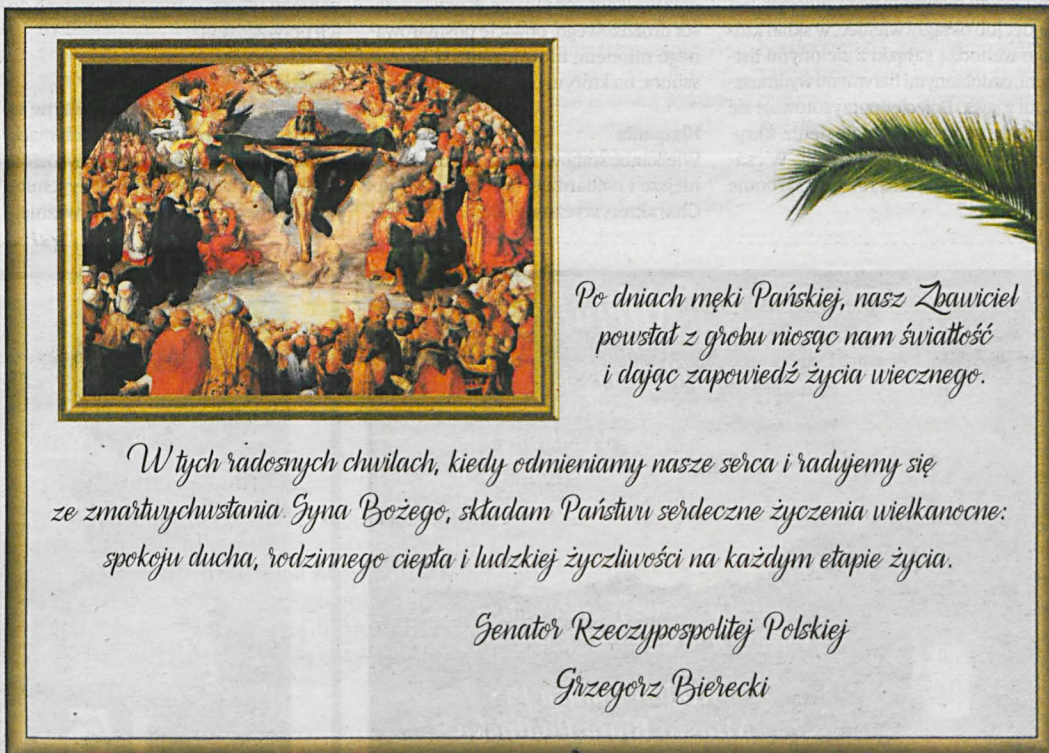 Po dniach męki Pańskiej, nasz Zbawiciel
powstał z grobu niosąc nam światłość
i dając zapowiedź życia wiecznego.
W tych radosnych chwilach, kiedy odmieniamy nasze serca i radujemy się
ze zmartwychwstania Syna Bożego, składam Państwu serdeczne życzenia wielkanocne:
spokoju ducha, rodzinnego ciepła i ludzkiej życzliwości na każdym etapie życia.
Senator Rzeczypospolitej Polskiej
Grzegorz Bierecki